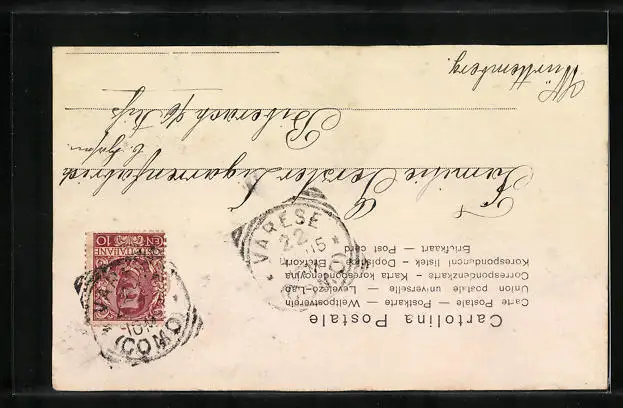 Cartolina Postale
Carte Postale — Postkarte — Weltpostverein
Union postale universelle — Levelező-Lap
Correspondenzkarte — Karta korespondencyjna
Korespondenční lístek — Dopisnice
Brefkaart — Post card
VARESE
22
(COMO)
CENT. 10
ITALIANE
(COMO)
Familie Gerster Zigarrenfabrik
Biberach a/ Riss
Württemberg.